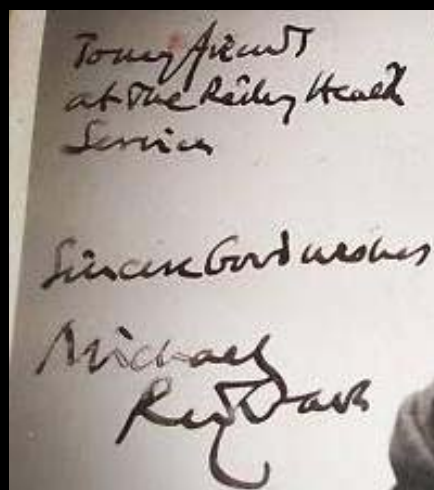 To my friends
at the Railey Health
Service
Sincere Good wishes
Michael
Redgrave